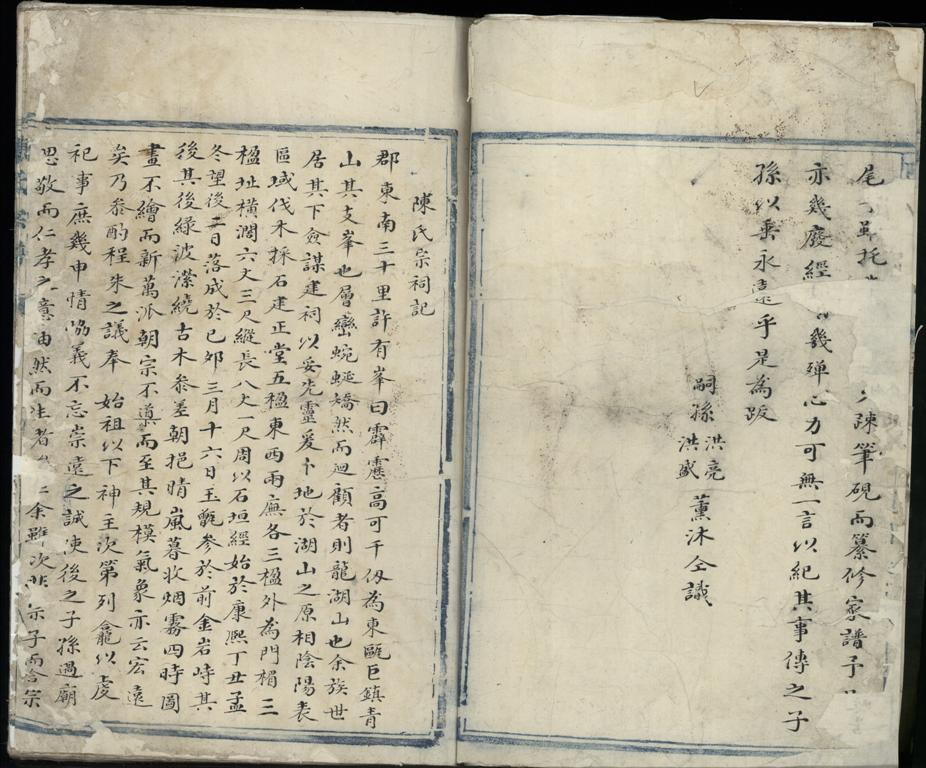 尾
託
疎筆硯而纂修家譜予
亦幾廢經
幾殫心力可無一言以紀其事傳之子
孫以垂永遠乎是為跋
嗣孫
洪亮
洪盛
薰沐仝識
陳氏宗祠記
郡東南三十里許有峯曰霹靂高可千仭為東甌巨鎮青
山其支峯也層巒蜿蜒矯然而迴顧者則龍湖山也余族世
居其下僉謀建祠以妥光靈爰卜地於湖山之原相陰陽表
區域伐木採石建正堂五楹東西兩廡各三楹外為門楣三
楹址橫濶六丈三尺縱長八丈一尺周以石垣經始於康熙丁丑孟
冬望後二日落成於已夘三月十六日玉甑參於前金岩峙其
後其後緑波瀠繞古木叅差朝挹晴嵐暮收烟霧四時圖
畫不繪而新萬派朝宗不遵而至其規模氣象亦云宏遠
矣乃叅酌程朱之議奉 始祖以下神主次第列龕以虔
祀事庶幾申情協義不忘崇遠之誠使後之子孫過廟
思敬而仁孝之意油然而生者
余雖次非
子而合宗